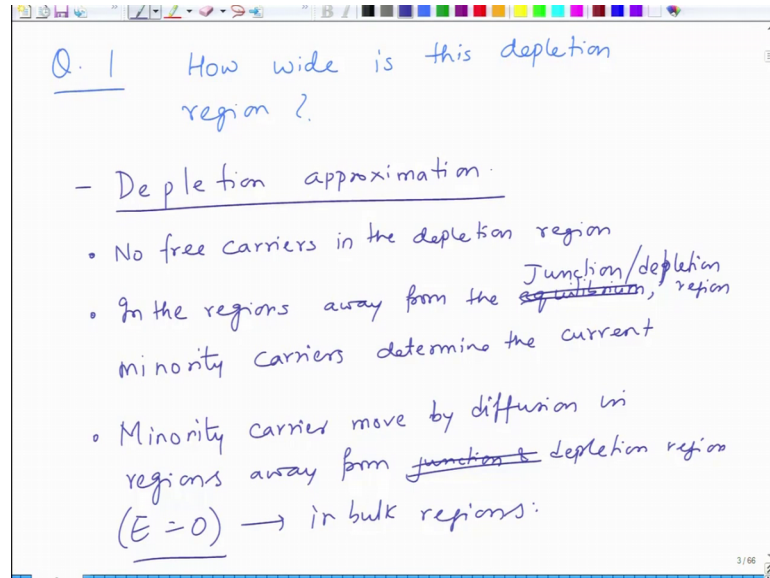 Q. 1 How wide is this depletion
region ?
- Depletion approximation.
• No free carriers in the depletion region
Junction/depletion
• In the regions away from the equilibrium, region
minority carriers determine the current
• Minority carrier move by diffusion in
regions away from junction & depletion region
(E = 0) → in bulk regions:
3 / 66